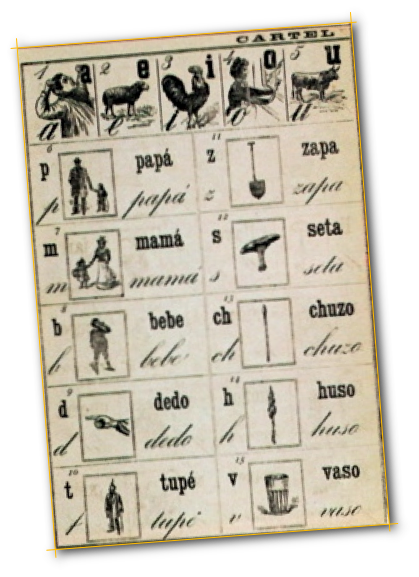 CARTEL
1 a 2 e 3 i 4 o 5 u
a e i o u
6
p papá
p papá
7
m mamá
m mamá
8
b bebe
b bebe
9
d dedo
d dedo
10
t tupé
t tupé
11
z zapa
z zapa
12
s seta
s seta
13
ch chuzo
ch chuzo
14
h huso
h huso
15
v vaso
v vaso